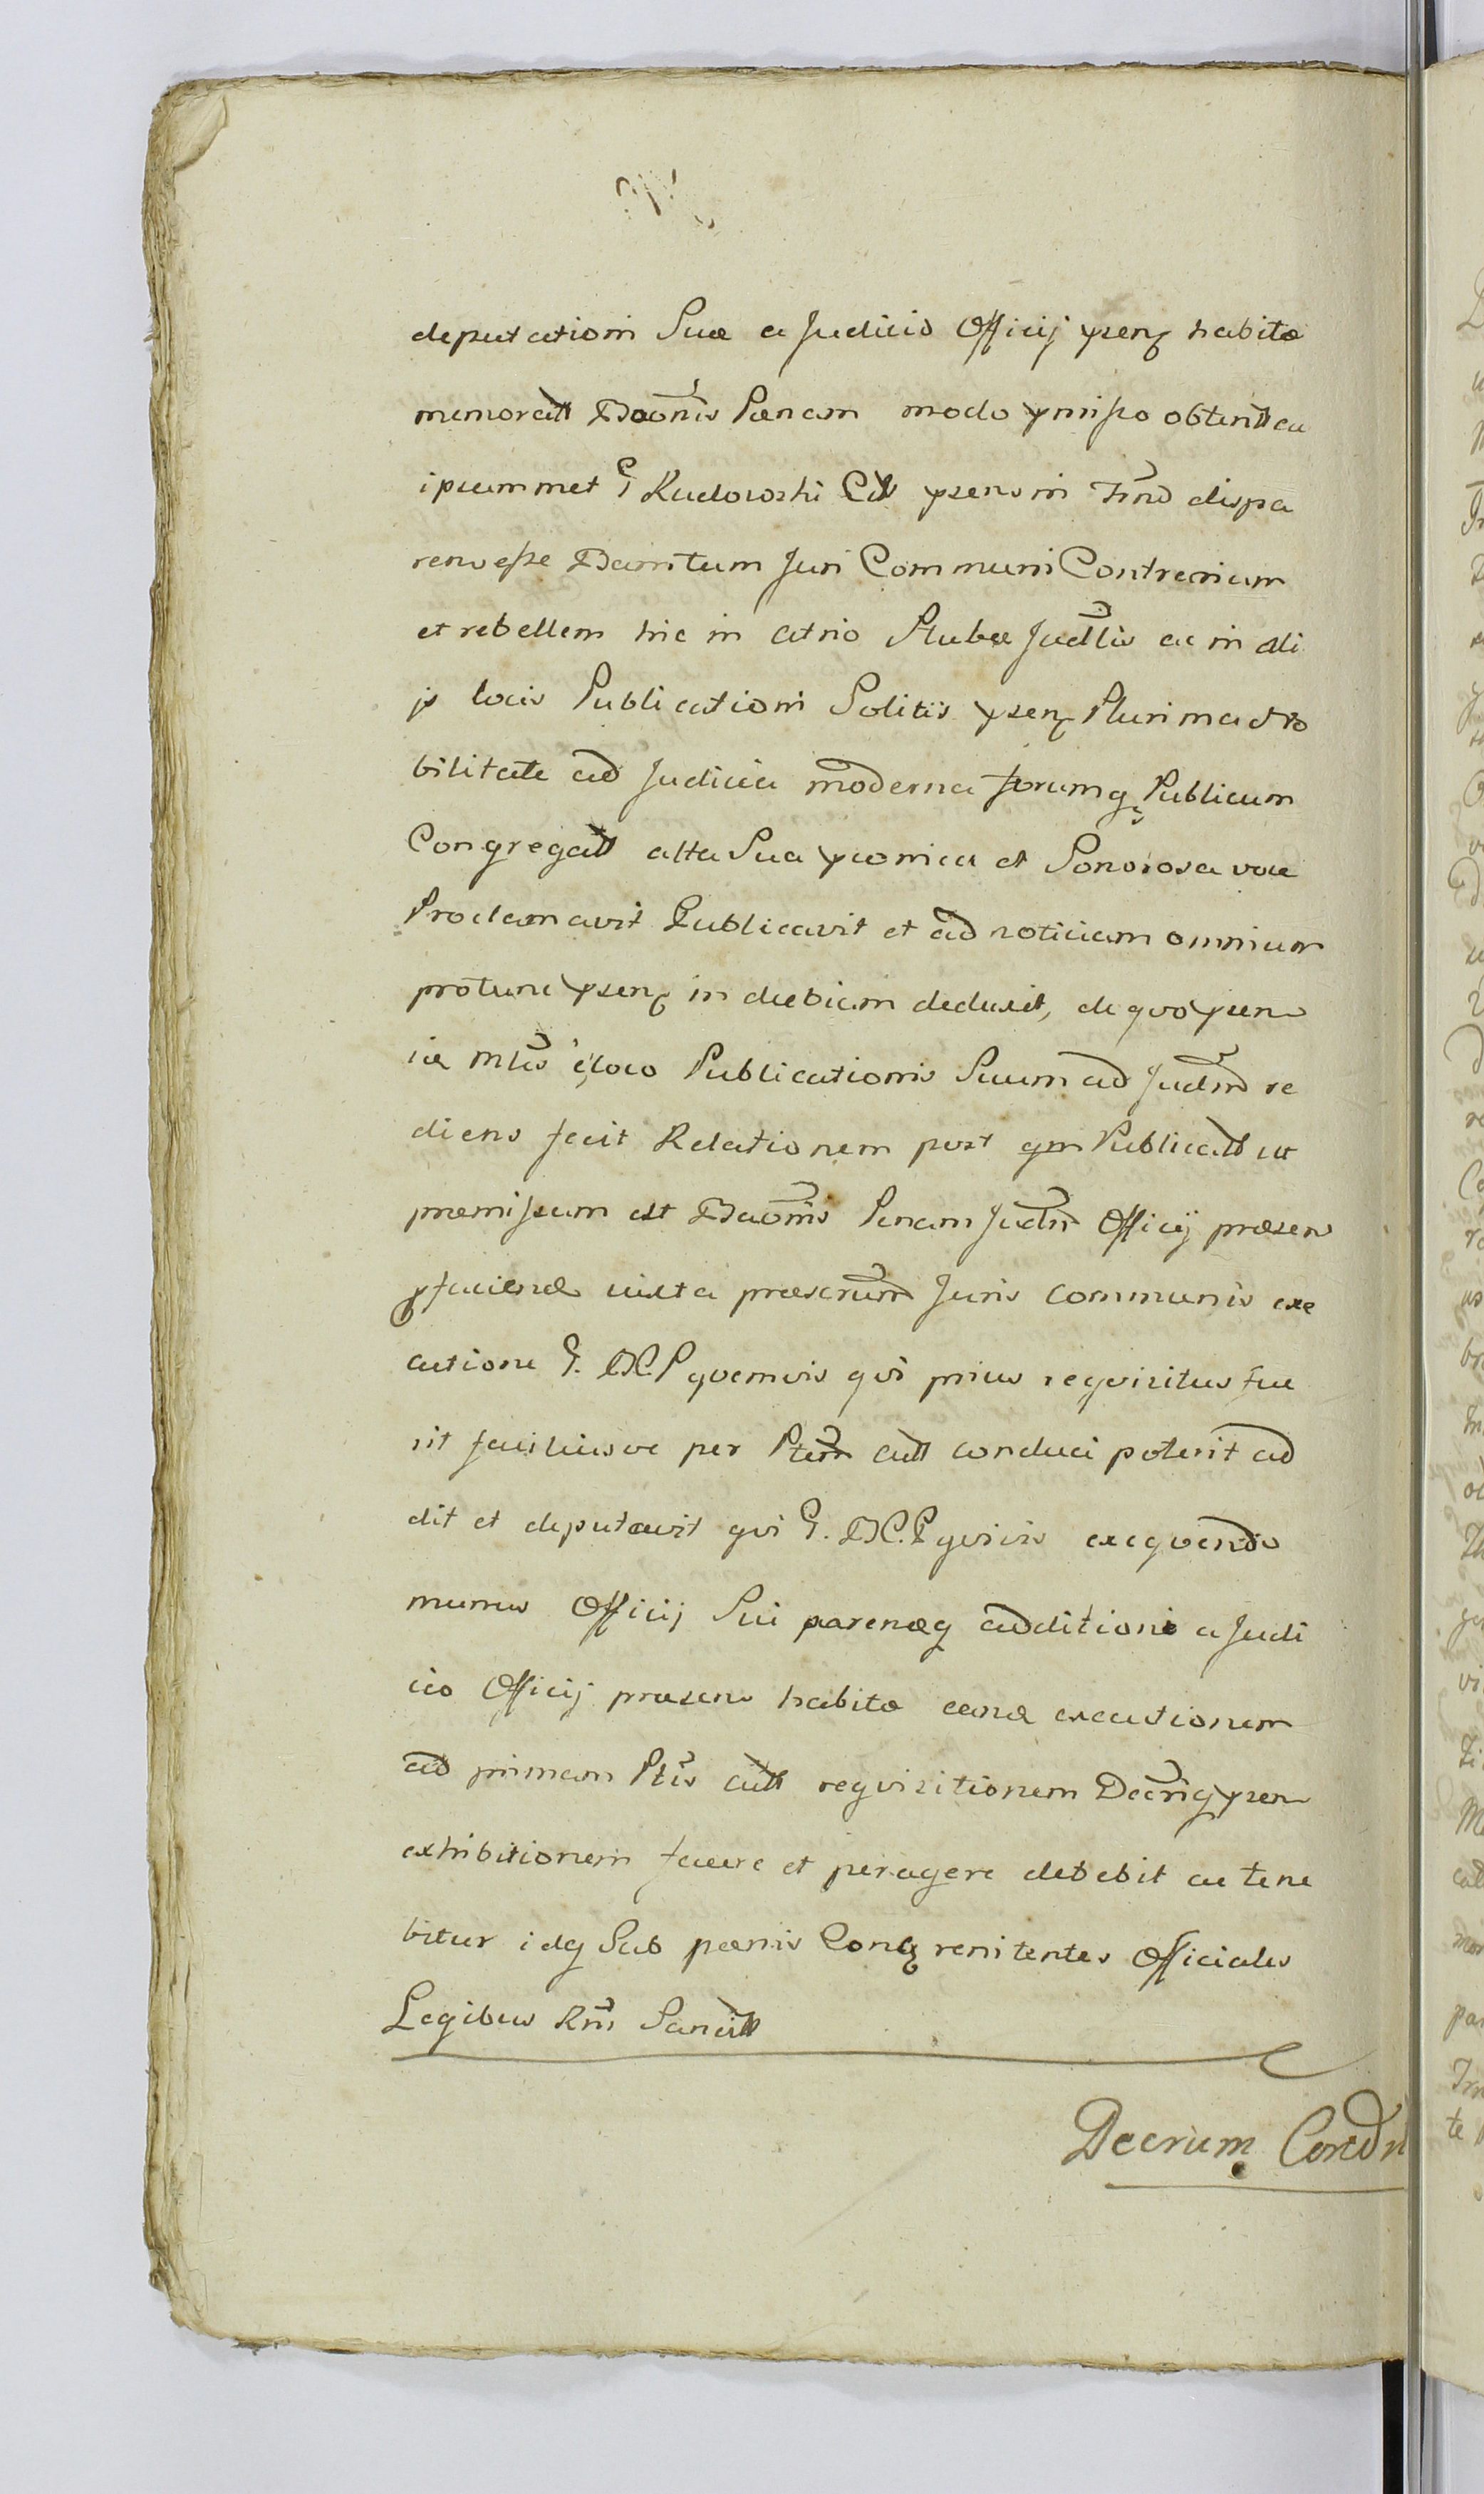 deputationi Suæ a Judicio Officij psenq habitæ
memoratt Bãonis Pænam modo pmisso obtentt ac
ipsummet G Rudowski Citt psens in Tmno dispa
rens esse Bannitum Juri Communi Contrarium
et rebellem hic in atrio Stubæ Judllis ac in ali
js locis Publicationi Solitis psenq Plurima No
bilitate ad Judicia moderna forumq Publicum
Congregatt alta Sua præonica et Sonorosa voce
Proclamavit Publicavit et ad noticiam omnium
protunc psenq in dubiam deduxit, de quo psen
iæ Mlis é loco Publicationis Suum ad Judm re
diens fecit Relationem post qm Publicatt ut
præmissum est Bãonis Pænam Judm Officij præsen
p facienda iuxta præscrum Juris Communis exe
cutione G. M.C.P quemvis qvi prius reqvisitus fue
rit faciliusve per Ptem Actt conduci poterit ad
dit et deputavit qvi G. M.C.P qvivis exeqvendo
munus Officij Sui parendq additioni a Judi
cio Officij præsens habitæ eand executionem
ad primam Ptis Actt reqvisitionem Decriq psen
exhibitionem facere et peragere debebit ac tene
bitur idq Sub pænis Conq renitentes Officiales
Legibus Rni Sancitt
Decrum Cond